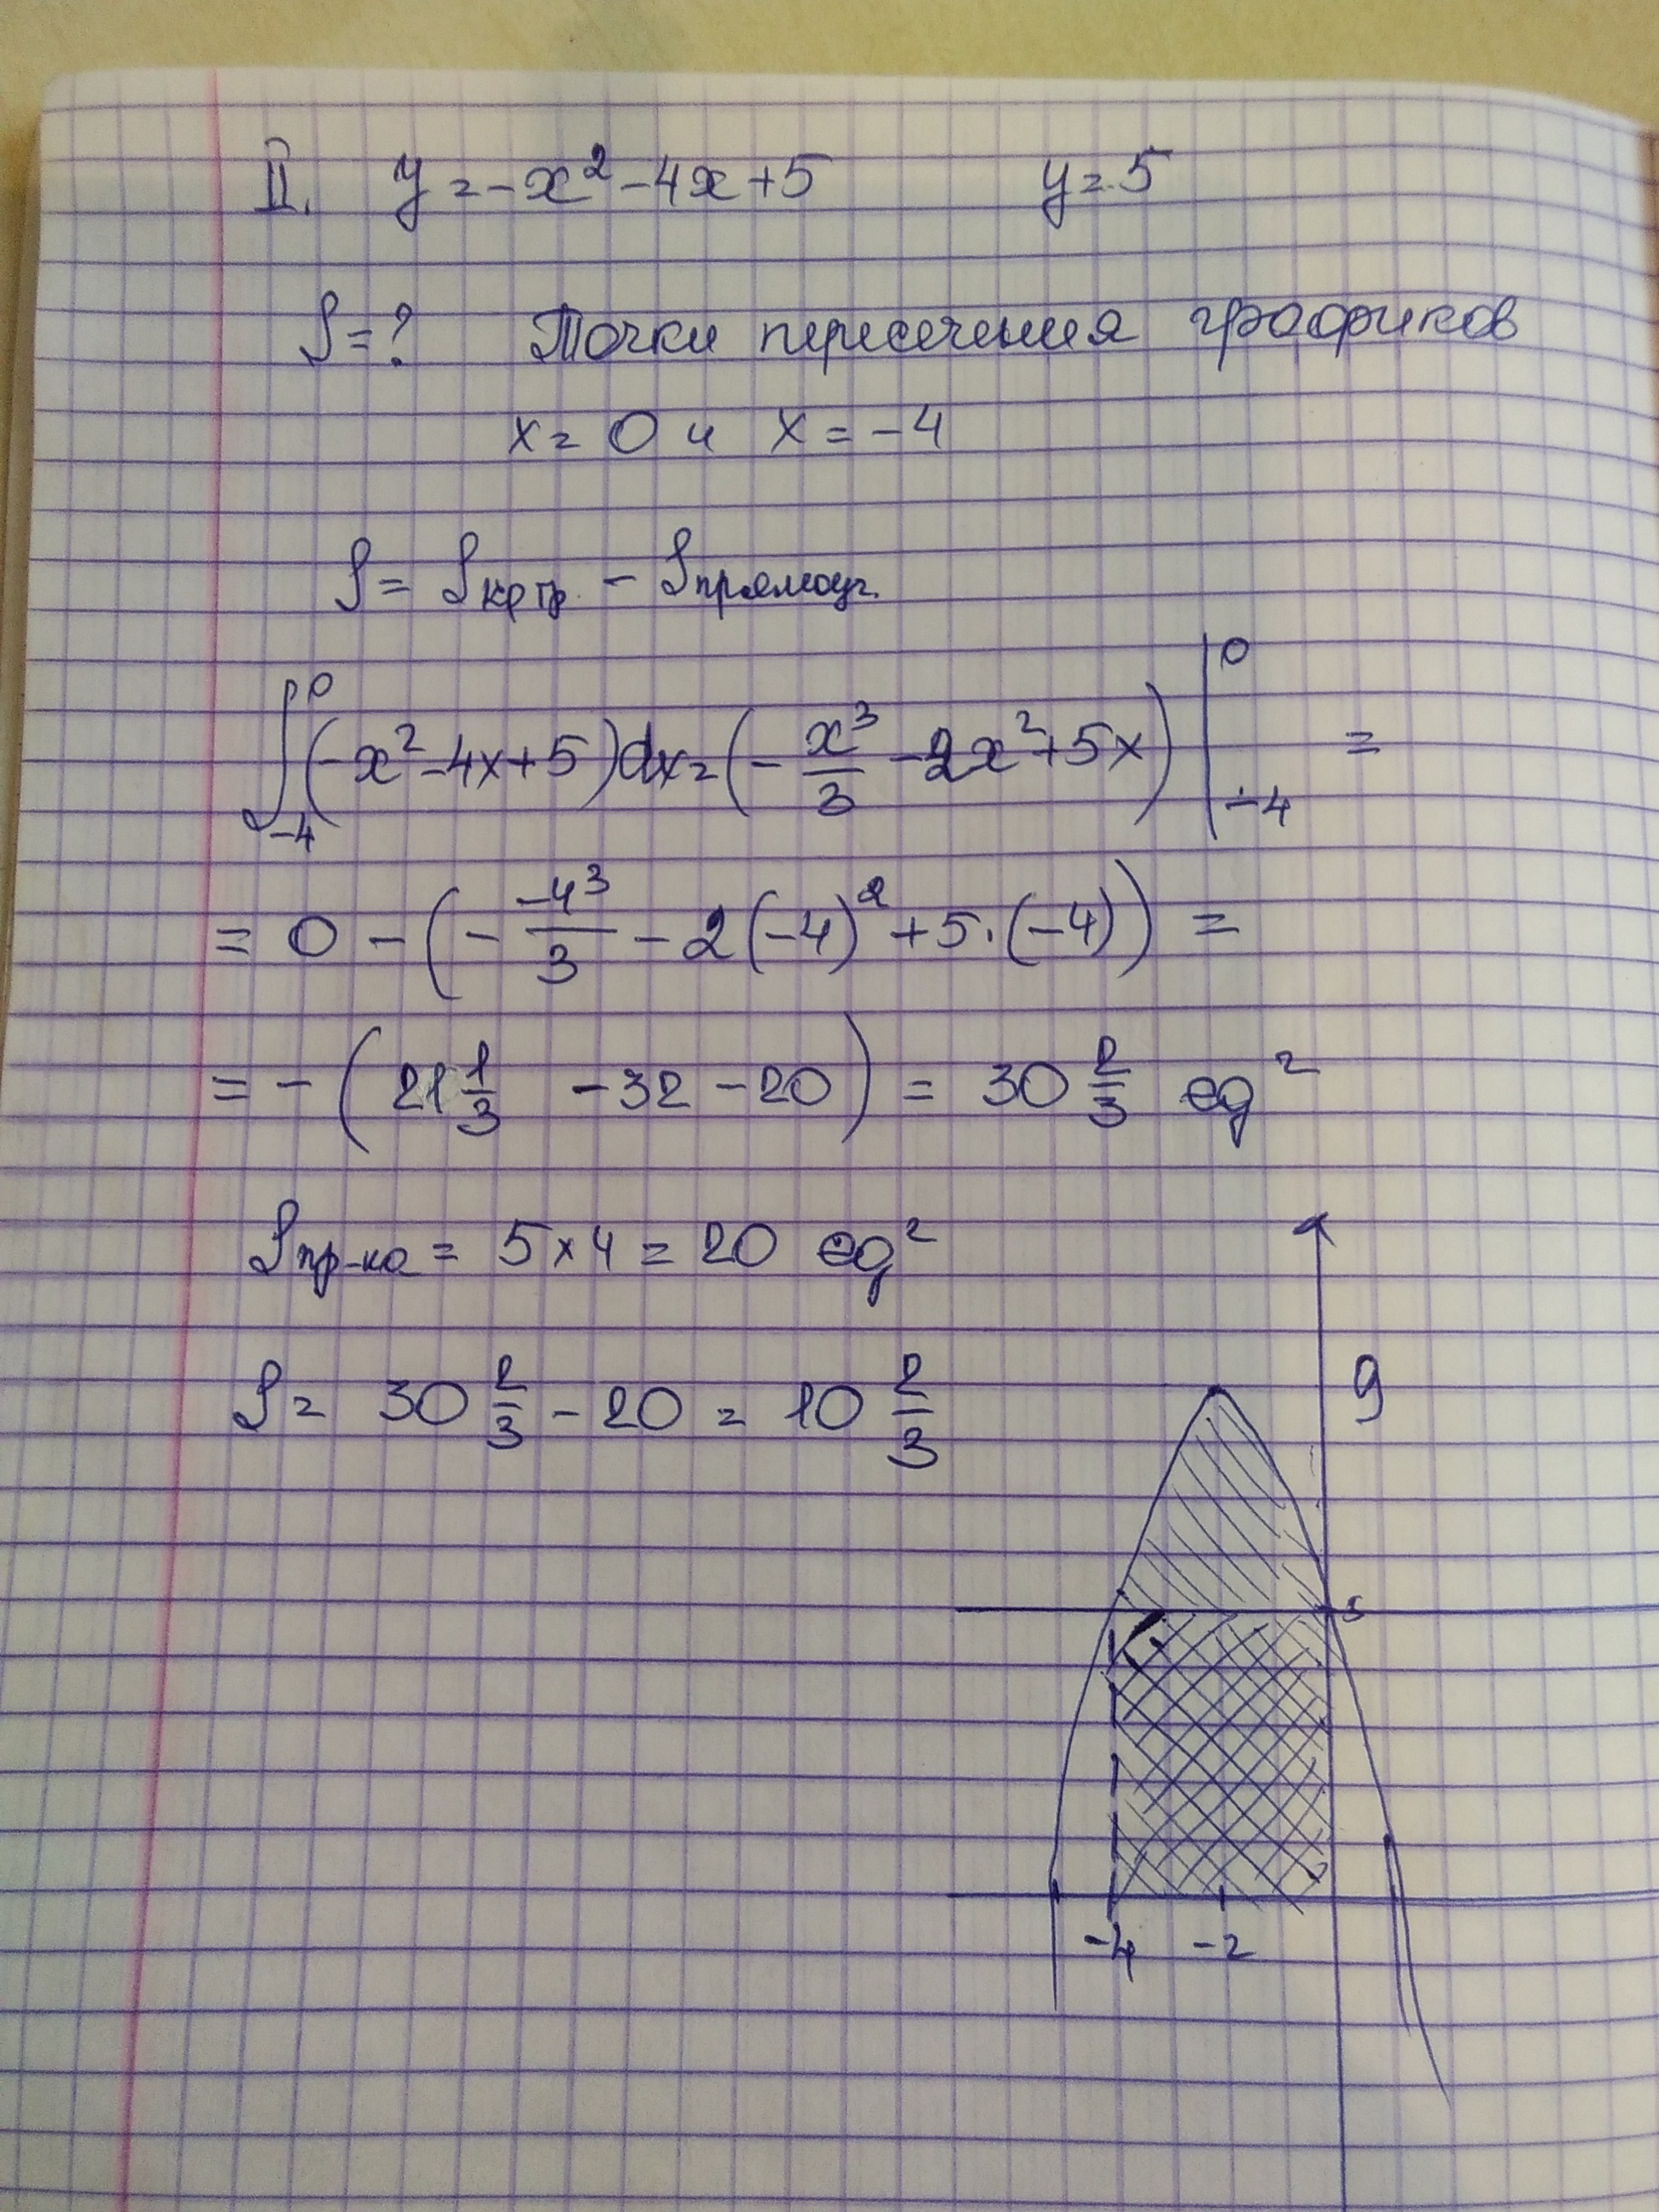 II. y = -x² - 4x + 5 y = 5
S = ? Точки пересечения графиков
x = 0 и x = -4
S = Sкр тр. - Sпрямоуг.
∫₋₄⁰ (-x² - 4x + 5)dx = (- x³/3 - 2x² + 5x) |₋₄⁰ =
= 0 - (- -4³/3 - 2(-4)² + 5·(-4)) =
= - (21 1/3 - 32 - 20) = 30 2/3 ед²
Sпр-ка = 5 × 4 = 20 ед²
S = 30 2/3 - 20 = 10 2/3
9
5
-4 -2